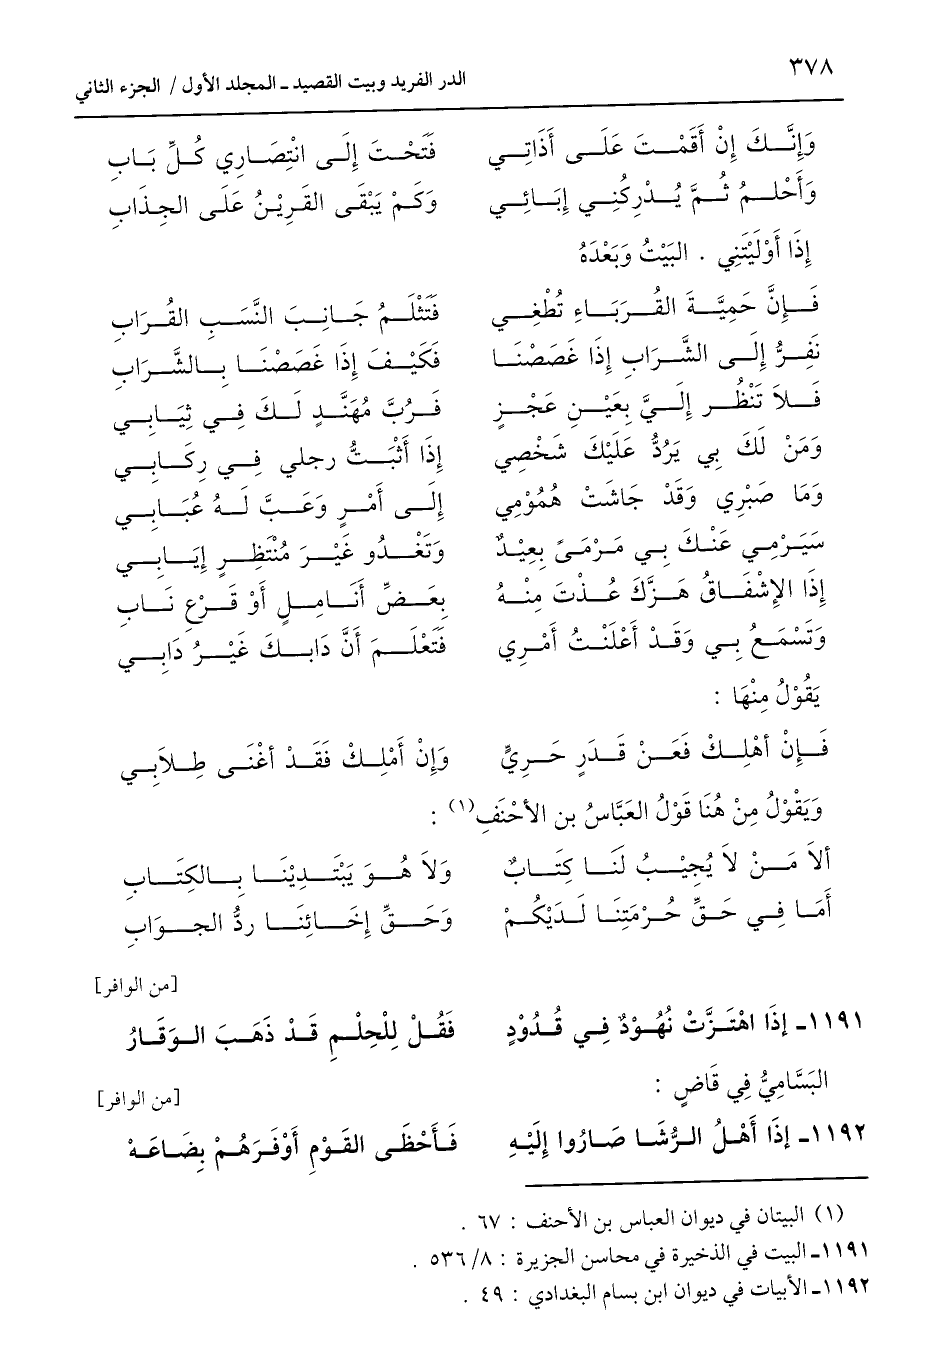 ٣٧٨
الدر الفريد وبيت القصيد ـ المجلد الأول / الجزء الثاني
وَإِنَّـكَ إِنْ أَقَمْـتَ عَلَـى أَذَاتِـي فَتَحْـتَ إِلَـى انْتِصَـارِي كُـلِّ بَـابِ
وَأَحْلـمُ ثُـمَّ يُـدْرِكُنِـي إبَـائِـي وَكَـمْ يَبْقَـى القَرِيْنُ عَلَى الجِذَابِ
إِذَا أَوْلَيْتَنِي . البَيْتُ وَبَعْدَهُ
فَـإِنَّ حَمِيَّـةَ القُـرَبَـاءِ تُطْغِـي فَتَثْلَـمُ جَـانِـبَ النَّسَـبِ القُـرَابِ
نَفـرُّ إِلَـى الشَّـرَابِ إِذَا غَصَصْنَـا فَكَيْـفَ إِذَا غَصَصْنَـا بِـالشَّـرَابِ
فَـلاَ تَنْظُـر إِلَـيَّ بِعَيْـنِ عَجْـزٍ فَـرُبَّ مُهَنَّـدٍ لَـكَ فِـي ثِيَـابِـي
وَمَنْ لَكَ بِي يَرُدُّ عَلَيْكَ شَخْصِي إِذَا أَثْبَـتُّ رجلي فِـي رِكَـابِـي
وَمَا صَبْرِي وَقَدْ جَاشَتْ هُمُوْمِي إِلَـى أَمْـرٍ وَعَـبَّ لَـهُ عُبَـابِـي
سَيَـرْمِي عَنْـكَ بِـي مَـرْمَىً بعِيْـدٌ وَتَغْـدُو غَيْـرَ مُنْتَظِـرٍ إِيَـابِـي
إِذَا الإِشْفَـاقُ هَـزَّكَ عُـذْتَ مِنْـهُ بِعَـضِّ أَنَـامِـلٍ أَوْ قَـرْعِ نَـابِ
وَتَسْمَـعُ بِـي وَقَـدْ أَعْلَنْـتُ أَمْـرِي فَتَعْلَـمَ أَنَّ دَابَـكَ غَيْـرُ دَابِـي
يَقُوْلُ مِنْهَا :
فَـإِنْ أَهْلِـكْ فَعَـنْ قَـدَرٍ جَـرِيٍّ وَإِنْ أَمْلِـكْ فَقَـدْ أَغْنَـى طِـلاَبِـي
وَيَقُوْلُ مِنْ هُنَا قَوْلُ العَبَّاسُ بن الأَحْنَفِ(١) :
أَلاَ مَـنْ لاَ يُجِيْـبُ لَنَـا كِتَـابٌ وَلاَ هُـوَ يَبْتَـدِيْنَـا بِـالكِتَـابِ
أَمَـا فِـي حَـقِّ حُـرْمَتِنَـا لَـدَيْكُـمْ وَحَـقِّ إِخَـائِنَـا ردُّ الجـوَابِ
[من الوافر]
١١٩١ـ إذَا اهْتَـزَّتْ نُهُـوْدٌ فِـي قُـدُوْدٍ فَقُـلْ لِلْحِلْـمِ قَـدْ ذَهَـبَ الـوَقَـارُ
البَسَّامِيُّ فِي قَاضٍ :
[من الوافر]
١١٩٢ـ إذَا أَهْـلُ الـرُّشَـا صَـارُوا إِلَيْـهِ فَـأَحْظَـى القَـوْمِ أَوْفَـرَهُـمْ بِضَـاعَـهْ
(١) البيتان في ديوان العباس بن الأحنف : ٦٧ .
١١٩١ـ البيت في الذخيرة في محاسن الجزيرة : ٨/ ٥٣٦ .
١١٩٢ـ الأبيات في ديوان ابن بسام البغدادي : ٤٩ .